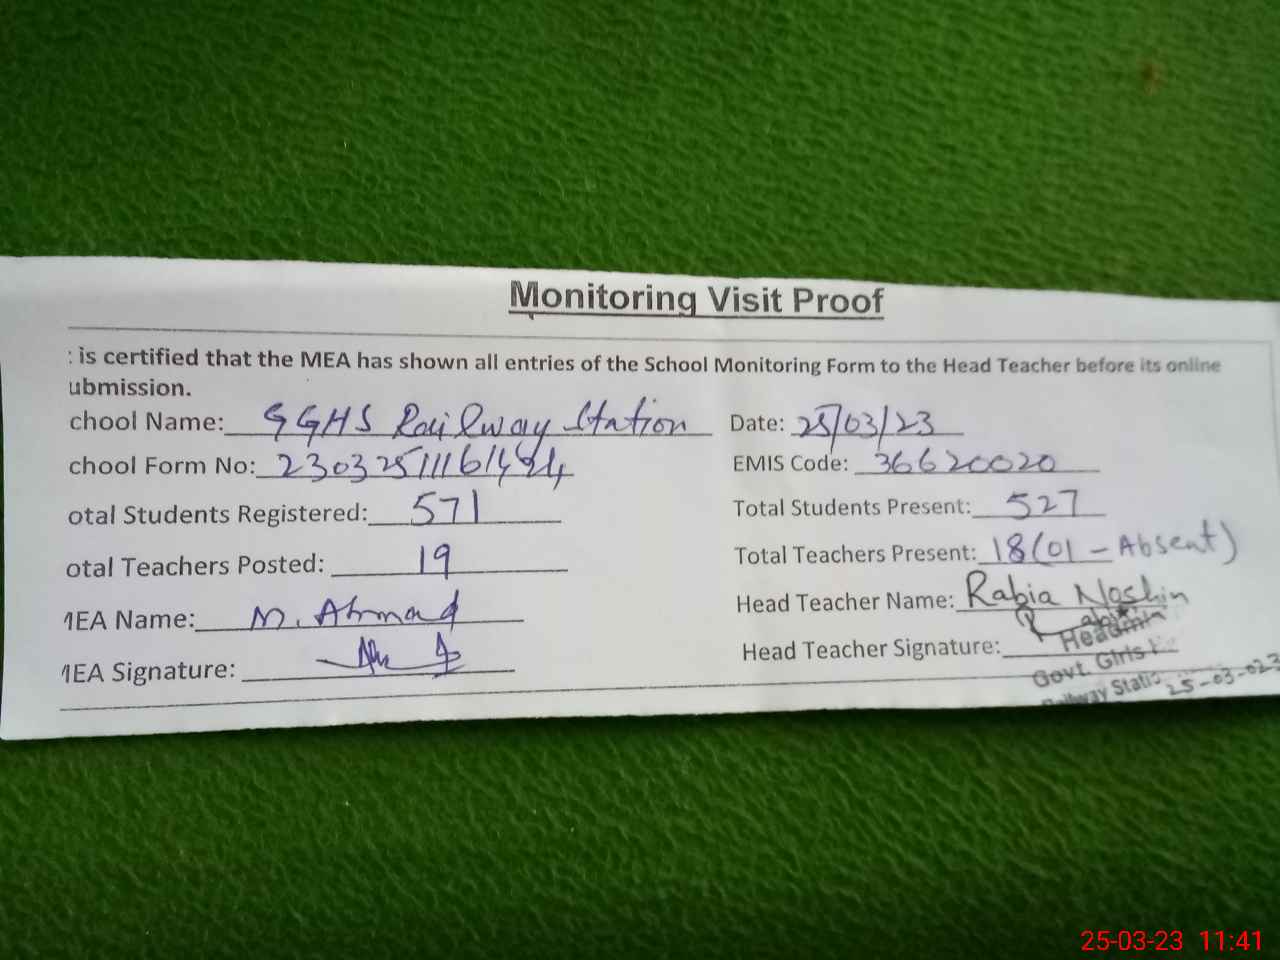 Monitoring Visit Proof
: is certified that the MEA has shown all entries of the School Monitoring Form to the Head Teacher before its online
ubmission.
chool Name: GGHS Railway Station Date: 25/03/23
chool Form No: EMIS Code: 36620020
otal Students Registered: 571 Total Students Present: 527
otal Teachers Posted: 19 Total Teachers Present: 18 (01 - Absent)
MEA Name: M. Ahmad Head Teacher Name: Rabia Noshin
MEA Signature: Head Teacher Signature:
Headmi
Govt. Girls H
Railway Statio 25-03-023
25-03-23 11:41